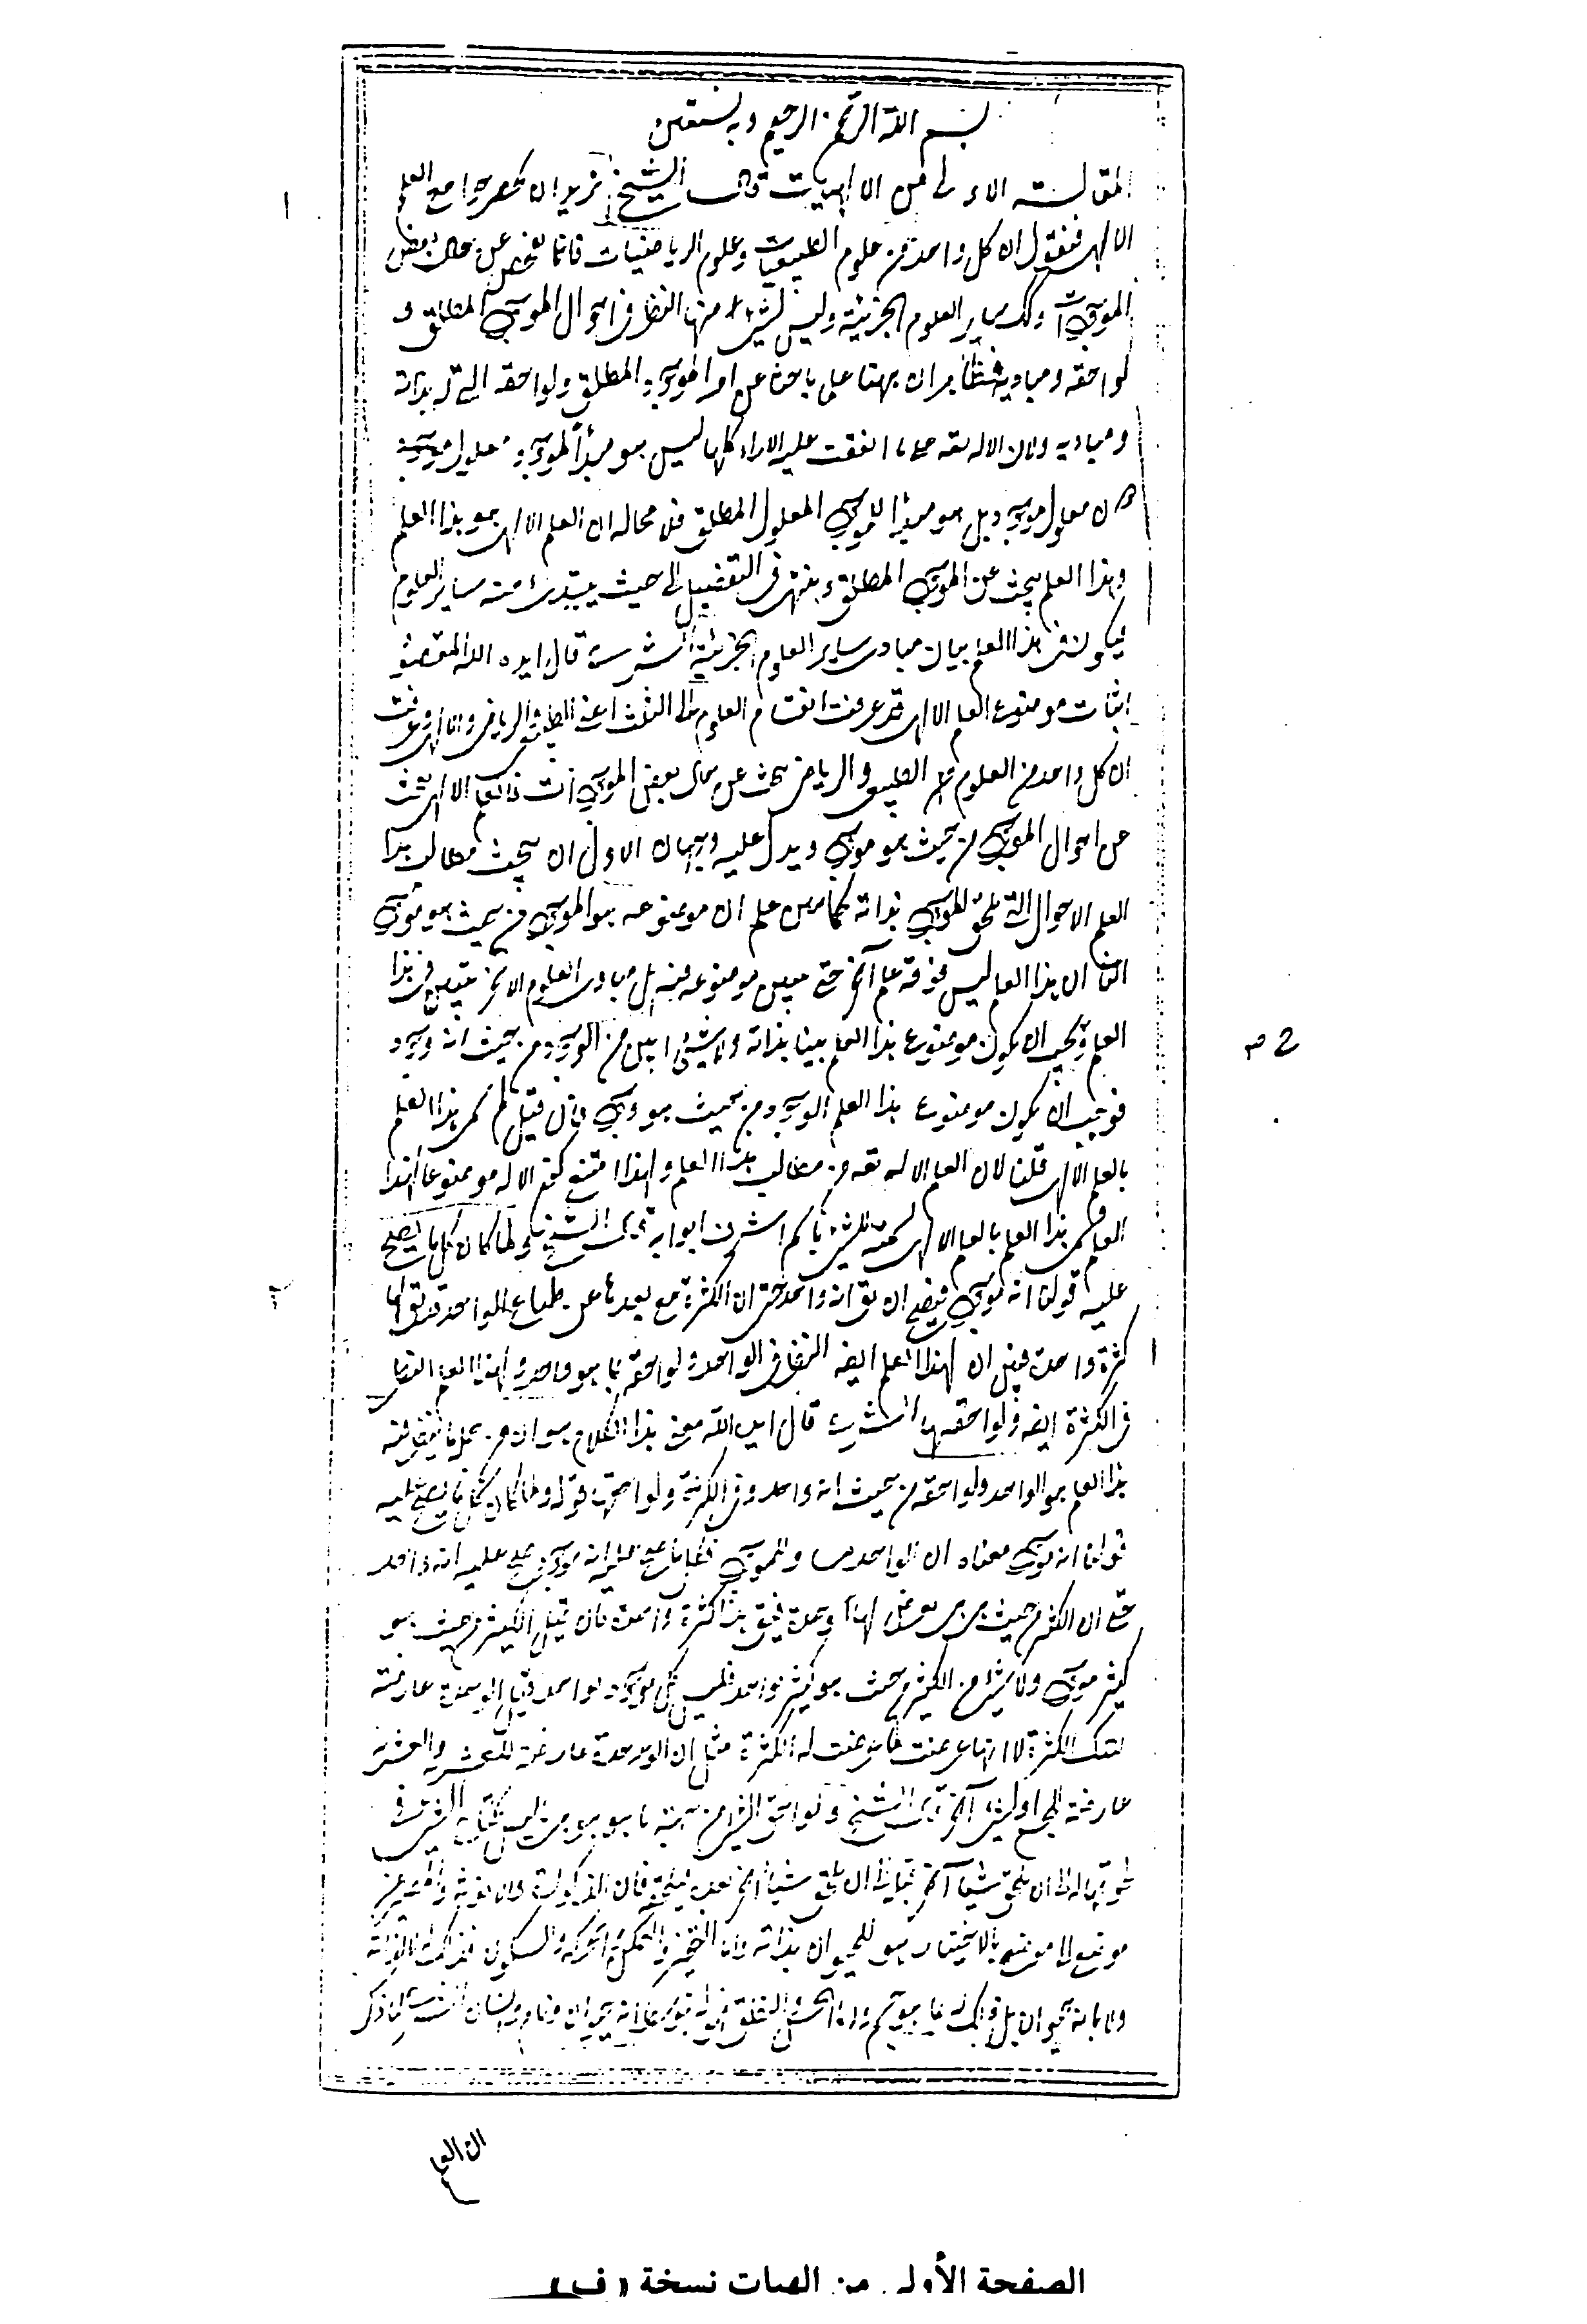 بسم الله الرحمن الرحيم وبه نستعين
المقالة الاولى من الالهيات قال الشيخ نريد ان نحصر جوامع العلم
١
الالهى فنقول ان كل واحد من علوم الطبيعيات وعلوم الرياضيات فانما يفحص عن حال بعض
الموجودات وكذلك ساير العلوم الجزئية وليس لشئ منها النظر فى احوال الموجود المطلق و
لواحقه ومباديه فظاهر ان ههنا علما باحثا عن امر الموجود المطلق ولواحقه التى له بذاته
ومباديه ولان الاله تعه على ما اتفقت عليه الاراء كلها ليس هو مبدأ لموجود معلول
دون معلول موجود بل هو مبدأ للموجود المعلول المطلق فلا محالة ان العلم الالهى هو هذا العلم
وهذا العلم يبحث عن الموجود المطلق وينتهى فى التفصيل الى حيث يبتدئ منه ساير العلوم
فيكون فى هذا العلم بيان مبادى ساير العلوم الجزئية الشرح قال ايده الله المقصود
اثبات موضوع العلم الالهى قد عرفت انقسام العلوم الى الثلث اعنى الطبيعى والرياضى والالهى وعرفت
ان كل واحد من العلوم الطبيعى والرياضى يبحث عن حال بعض الموجودات فالعلم الالهى يبحث
عن احوال الموجود من حيث هو موجود ويدل عليه وجهان الاول ان يبحث مطالب هذا
العلم الاحوال التى تلحق الموجود بذاته علم ان موضوعه هو الموجود من حيث هو موجود
الثانى ان هذا العلم ليس فوقه علم آخر حتى يبين موضوعه فيه بل مبادى العلوم الاخر تتبين فى هذا
العلم فيجب ان يكون موضوع هذا العلم بينا بذاته ولا شئ ابين من الوجود من حيث انه وجود
2 م
فوجب ان يكون موضوع هذا العلم الوجود من حيث هو وجود فان قيل لم سمى هذا العلم
بالعلم الالهى قلنا لان العلم الاله تعه من مطالب هذا العلم ولهذا امتنع كون الاله موضوعا لهذا
العلم فسمى هذا العلم بالعلم الالهى تسمية للشئ باسم اشرف ابوابه قال الشيخ ولما كان كل ما يصح
عليه قولنا انه موجود فيصح ان يق انه واحد حتى ان الكثرة مع بعدها عن طباع الواحد قد يق لها
كثرة واحدة فبين ان لهذا العلم ايضه النظر فى الواحد ولواحقه بما هو واحد ولهذا العلم النظر
فى الكثرة ايضه ولواحقها الشرح قال ايده الله معنى هذا الكلام هو ان من جملة ما ينظر فيه
هذا العلم هو الواحد ولواحقه من حيث انه واحد وفى الكثرة ولواحقها قوله ولما كان كل ما يصح عليه
قولنا انه موجود معناه ان الواحد مساو للموجود فكل ما صح عليه انه موجود صح عليه انه واحد
حتى ان الكثرة من حيث هى هى يعرض لها وحدة فيق هذا كثرة واحدة فان قيل الكثير من حيث هو
كثير موجود ولا شئ من الكثير من حيث هو كثير بواحد فليس كل موجود بواحد قيل الوحدة عارضة
لتلك الكثرة لا انها عرضت لما عرضت له الكثرة مثل ان الوحدة عارضة للعشرية والعشرية
عارضة للجسم او لشئ آخر قال الشيخ ولواحق الشئ من جهة ما هو هو ليس يحتاج الشئ فى
لحوقها له الى ان يلحق شيئا آخر قبلها او الى ان يلحق شيئا آخر بعد فيلحقه فان الذكورة والانوثة والمصير من
موضع الى موضع بالاختيار هو للحيوان بذاته واما التحيز والتمكن والحركة والسكون فذلك له لا لذاته
ولا بما انه حيوان بل ذلك له بما هو جسم واما الحس والنطق انه حيوان ونام وانسان الشرح لما ذكر
ان العلم
الصفحة الأولى من الهيات نسخة «ف»